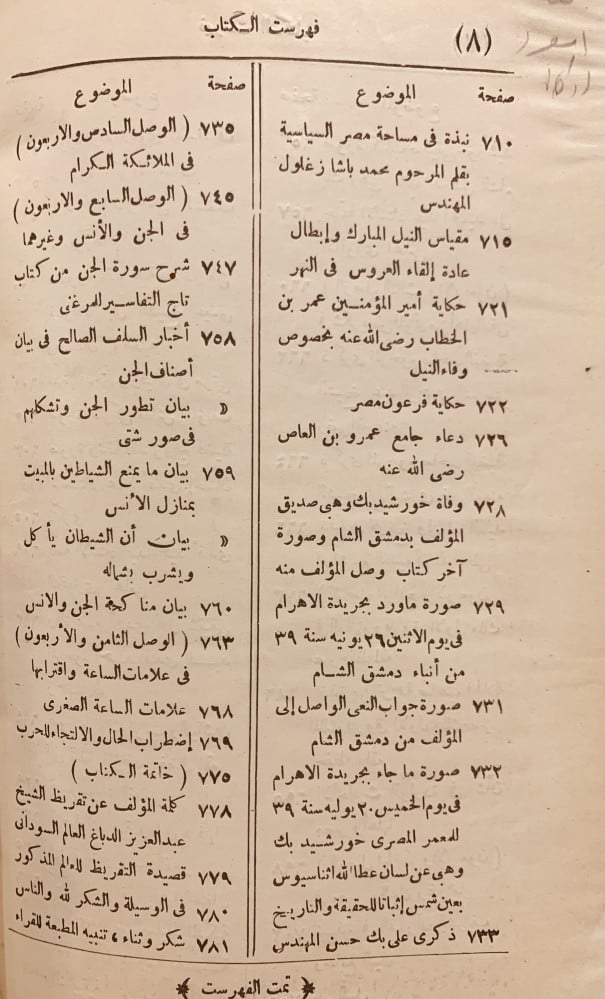 (٨)
فهرست الكتاب
صفحة الموضوع
٧١٠ نبذة فى مساحة مصر السياسية
بقلم المرحوم محمد باشا زغلول
المهندس
٧١٥ مقياس النيل المبارك وإبطال
عادة إلقاء العروس فى النهر
٧٢١ حكاية أمير المؤمنين عمر بن
الخطاب رضى الله عنه بخصوص
وفاء النيل
٧٢٢ حكاية فرعون مصر
٧٢٦ دعاء جامع عمرو بن العاص
رضى الله عنه
٧٢٨ وفاة خورشيد بك وهبى صديق
المؤلف بدمشق الشام وصورة
آخر كتاب وصل المؤلف منه
٧٢٩ صورة ماورد بجريدة الاهرام
فى يوم الاثنين ٢٦ يونيه سنة ٣٩
من أنباء دمشق الشام
٧٣١ صورة جواب النعى الواصل إلى
المؤلف من دمشق الشام
٧٣٢ صورة ما جاء بجريدة الاهرام
فى يوم الخميس ٢٠ يوليه سنة ٣٩
للمعمر المصرى خورشيد بك
وهبى عن لسان عطا الله اثناسيوس
بعين شمس إثباتا للحقيقة والتاريخ
٧٣٣ ذكرى على بك حسن المهندس
صفحة الموضوع
٧٣٥ ( الوصل السادس والاربعون )
فى الملائكة الكرام
٧٤٥ ( الوصل السابع والاربعون )
فى الجن والأنس وغيرهما
٧٤٧ شرح سورة الجن من كتاب
تاج التفاسير للمرغنى
٧٥٨ أخبار السلف الصالح فى بيان
أصناف الجن
» بيان تطور الجن وتشكلهم
فى صور شتى
٧٥٩ بيان ما يمنع الشياطين بالمبيت
بمنازل الأنس
» بيان أن الشيطان يأكل
ويشرب بشماله
٧٦٠ بيان مناكحة الجن والانس
٧٦٣ ( الوصل الثامن والأربعون )
فى علامات الساعة واقترابها
٧٦٨ علامات الساعة الصغرى
٧٦٩ إضطراب الحال والالتجاء للحرب
٧٧٥ ( خاتمة الكتاب )
٧٧٨ كلمة المؤلف عن تقريظ الشيخ
عبدالعزيز الدباغ العالم السودانى
٧٧٩ قصيدة التقريظ للعالم المذكور
٧٨٠ فى الوسيلة والشكر لله والناس
٧٨١ شكر وثناء ، تنبيه المطبعة للقراء
﴿ تمت الفهرست ﴾